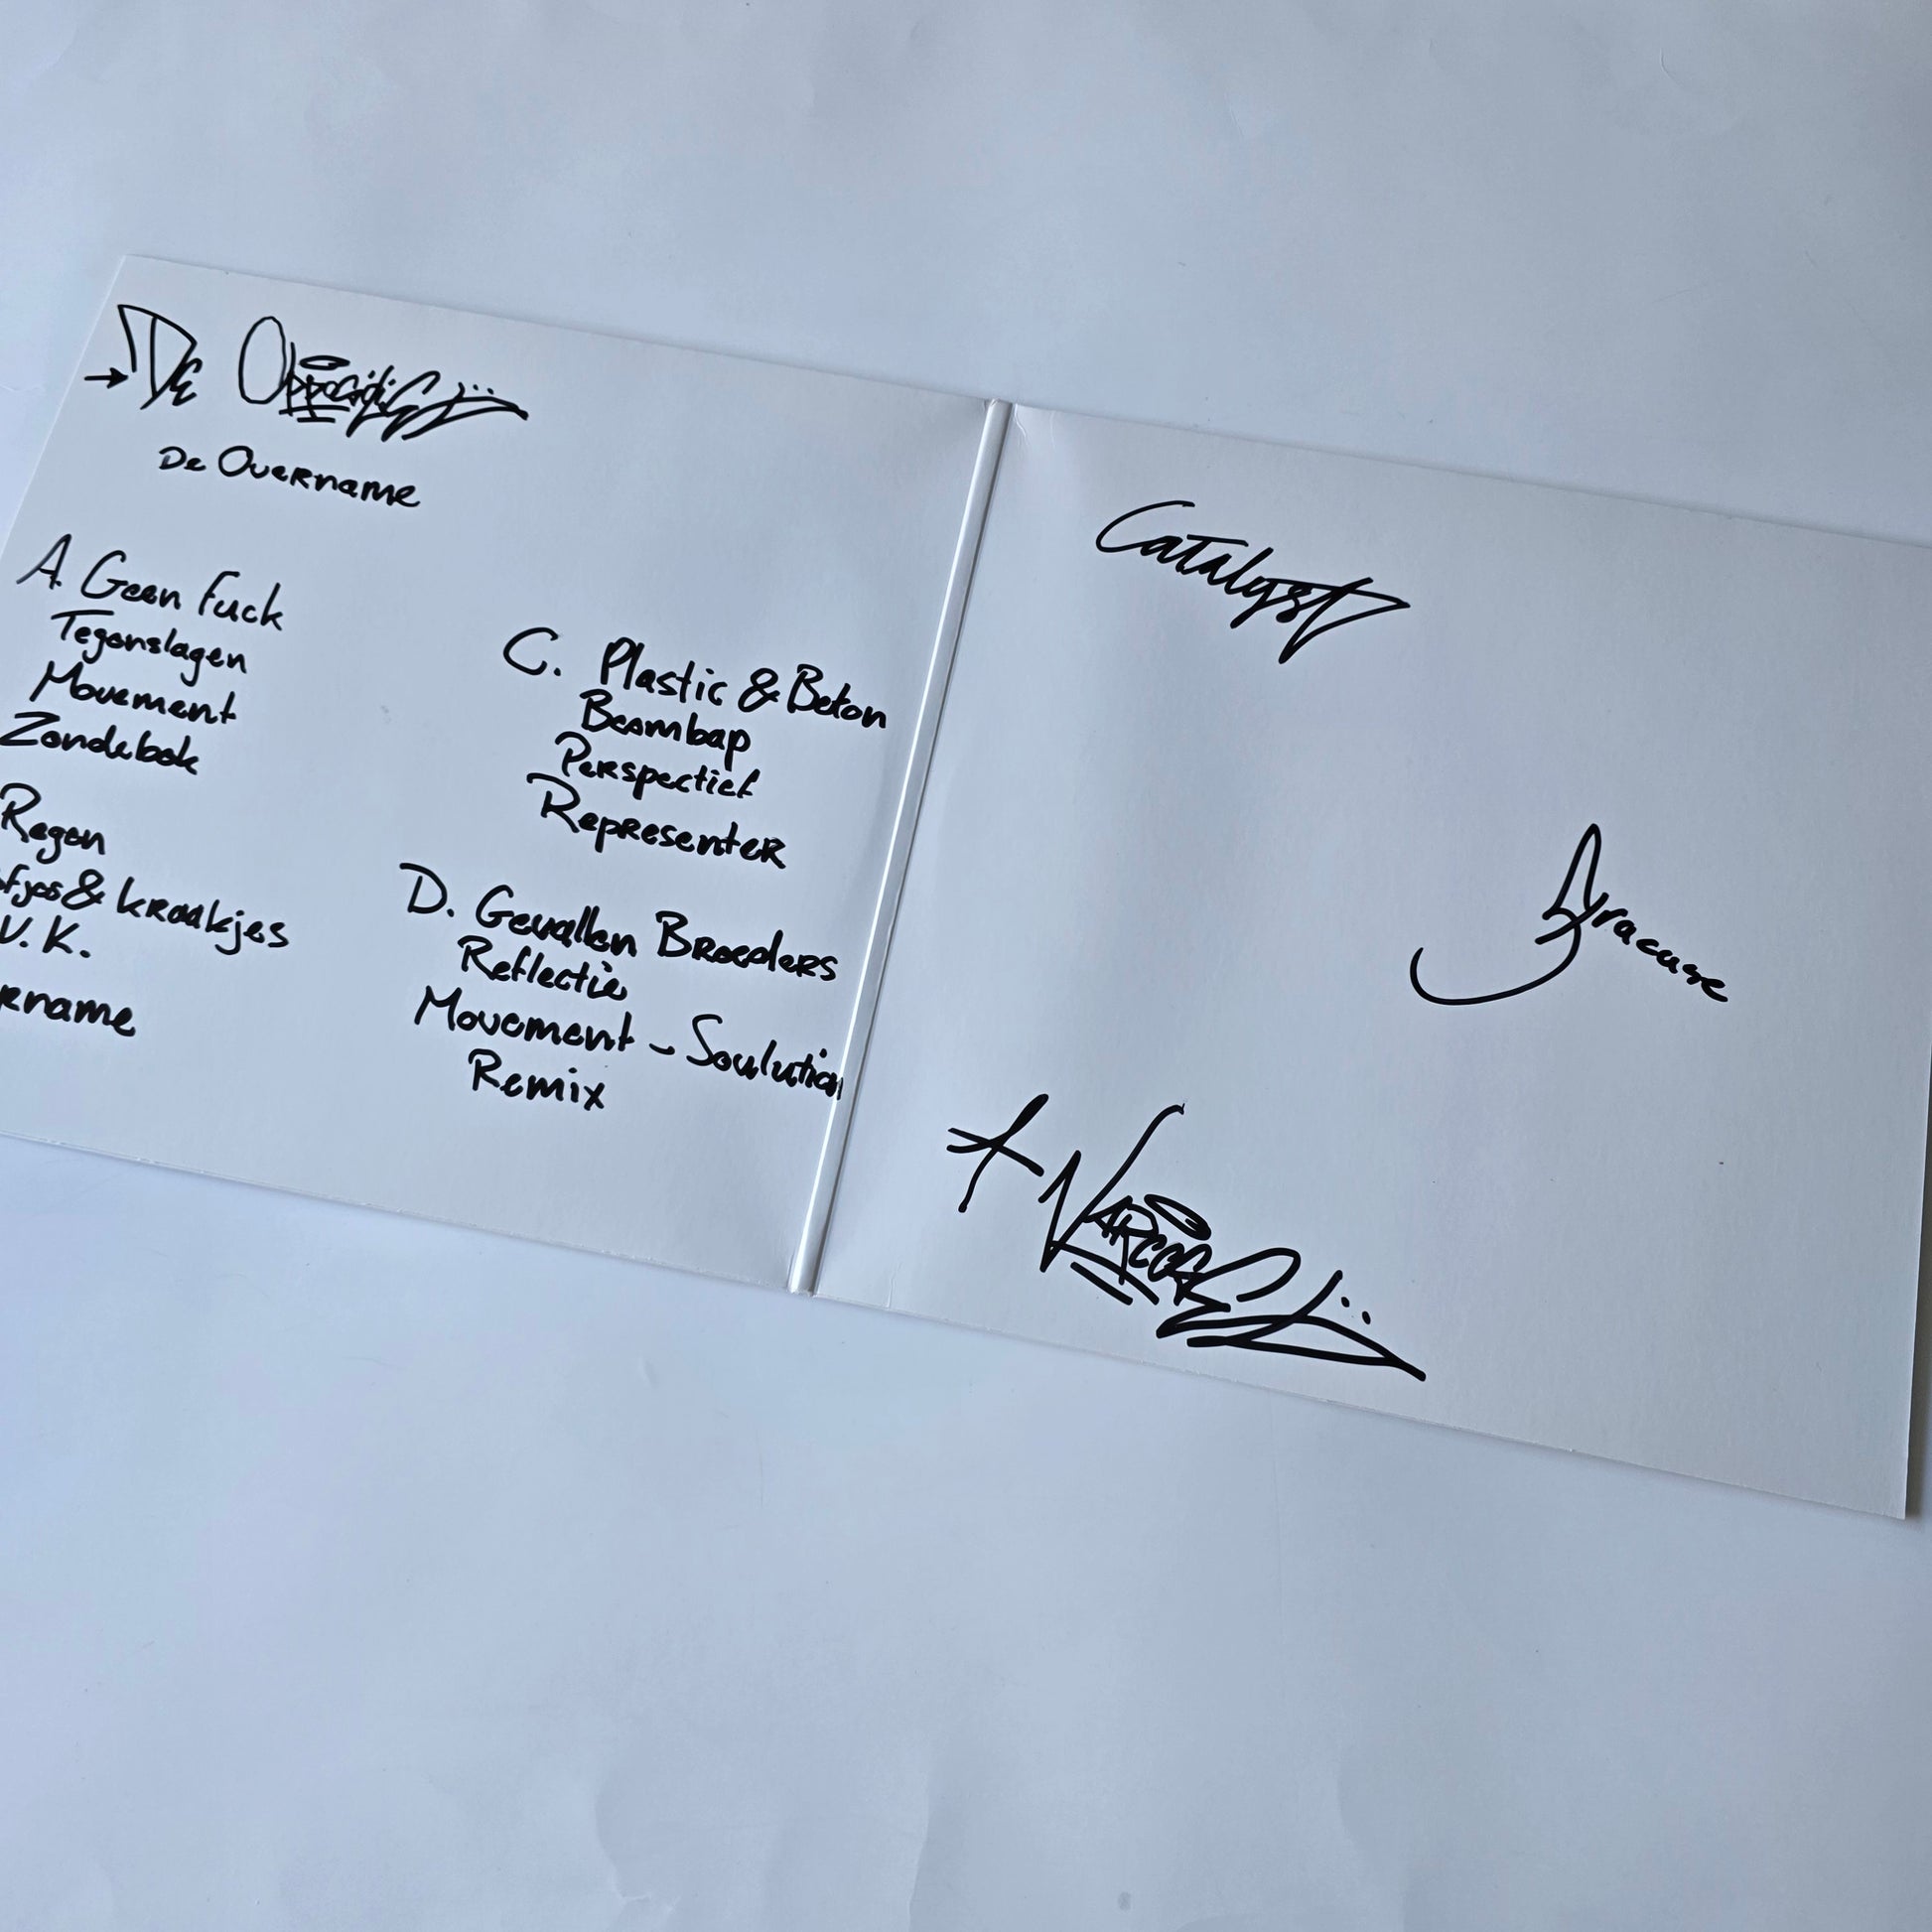 → De Oppositie
De Overname
A. Geen Fuck
Tegenslagen
Movement
Zondebok
Regen
fjes & kraakjes
V.K.
rname
C. Plastic & Beton
Boombap
Perspectief
Representer
D. Gevallen Broeders
Reflectie
Movement - Soulution
Remix
Catalyst
Narcose